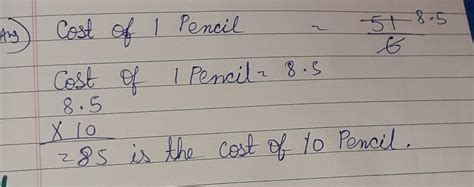 Ans) Cost of 1 Pencil = 51 8.5
6
Cost of 1 Pencil = 8.5
8.5
X 10
= 85 is the cost of 10 Pencil.